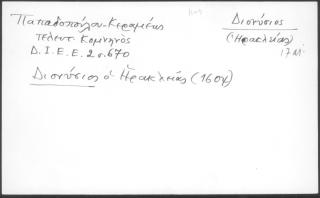 Παπαδοπούλου-Κεραμέως
τελευτ. Κομνηνὸς
Δ.Ι.Ε.Ε. 2 σ. 670
Διονύσιος
(Ἡρακλείας)
17 αἰ.
Διονύσιος ὁ Ἡρακλείας (